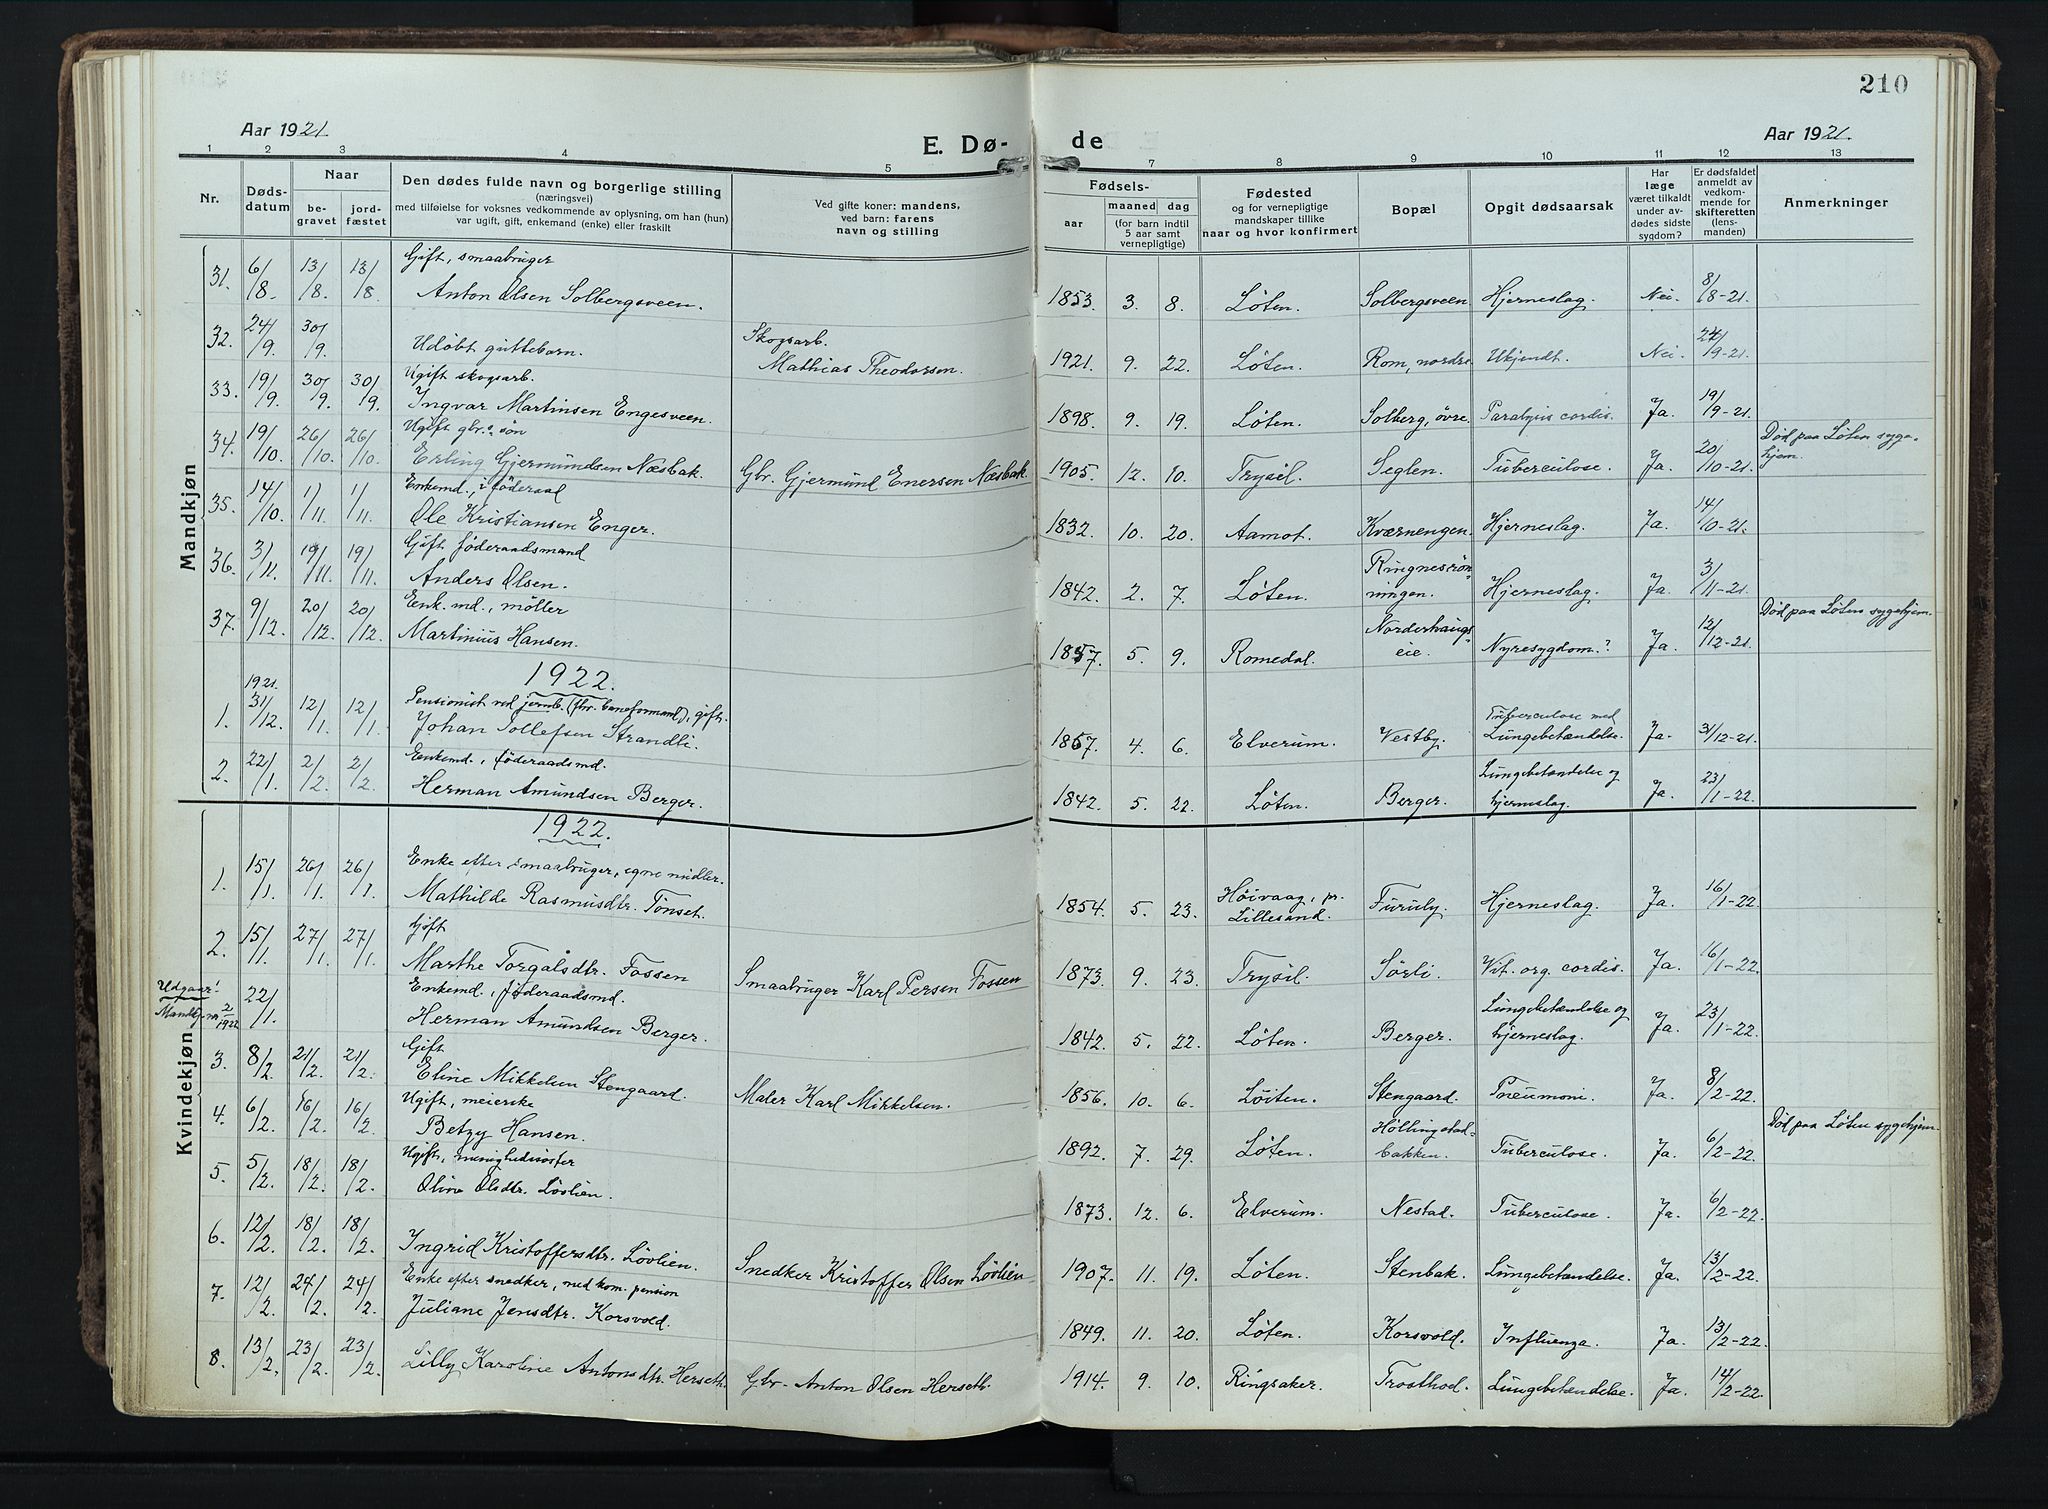 210
Aar 1921. E. Dø- de Aar 1921.
1 2 3 4 5 7 8 9 10 11 12 13
Nr. Døds-datum Naar be-gravet jord-fæstet Den dødes fulde navn og borgerlige stilling (næringsvei) med tilføielse for voksnes vedkommende av oplysning, om han (hun) var ugift, gift, enkemand (enke) eller fraskilt Ved gifte koner: mandens, ved barn: farens navn og stilling Fødsels- aar maaned dag (for barn indtil 5 aar samt vernepligtige) Fødested og for vernepligtige mandskaper tillike naar og hvor konfirmert Bopæl Opgit dødsaarsak Har læge været tilkaldt under av-dødes sidste sygdom? Er dødsfaldet anmeldt av vedkom-mende for skifteretten (lens-manden) Anmerkninger
Mandkjøn
31. 6/8. 13/8. 13/8 Gift, smaabruger
Anton Olsen Solbergsveen. 1853. 3. 8. Løten. Solbergsveen. Hjerneslag. Nei. 8/8-21.
32. 24/9. 30/9. Udøbt guttebarn. Skogsarb.
Mathias Theodorsen. 1921. 9. 22. Løten. Rom, nordre. Ukjendt. Nei. 24/9-21.
33. 19/9. 30/9. 30/9 Ugift skogsarb.
Ingvar Martinsen Engesveen. 1898. 9. 19. Løten. Solberg, övre. Paralysis cordis. Ja. 19/9-21.
34. 19/10. 26/10. 26/10 Ugift gbr.s søn
Erling Gjermundsen Næsbak. Gbr. Gjermund Enersen Næsbak. 1905. 12. 10. Trysil. Seglen. Tuberculose. Ja. 20/10-21. Død paa Løten syge-
hjem.
35. 14/10. 1/11. 1/11. Enkemd., i föderaad
Ole Kristiansen Enger. 1832. 10. 20. Aamot. Kværnengen. Hjerneslag. Ja. 14/10-21.
36. 3/11. 19/11. 19/11. Gift föderaadsmand
Anders Olsen. 1842. 2. 7. Løten. Ringnesrøn-
ningen. Hjerneslag. Ja. 3/11-21.
37. 9/12. 20/12. 20/12. Enk.md., möller
Martinius Hansen. 1857. 5. 9. Romedal. Norderhaugs-
eie. Nyresygdom? Ja. 12/12-21. Død paa Løten sygehjem.
1922.
1. 1921. 31/12. 12/1. 12/1. Pensionist ved jernb. (fhv. baneformand), gift.
Johan Tollefsen Strandli. 1857. 4. 6. Elverum. Vestby. Tuberculose med
Lungebetændelse. Ja. 31/12-21.
2. 22/1. 2/2. 2/2. Enkemd., föderaadsmd.
Herman Amundsen Berger. 1842. 5. 22. Løten. Berger. Lungebetændelse og
hjerneslag. Ja. 23/1-22.
Kvindekjøn
1922.
1. 15/1. 26/1. 26/1. Enke efter smaabruger, egne midler.
Mathilde Rasmusdtr. Tönset. 1854. 5. 23. Höivaag, pr.
Lillesand. Furuly. Hjerneslag. Ja. 16/1-22.
2. 15/1. 27/1. 27/1. Gift
Marthe Torgalsdtr. Fossen Smaabruger Karl Persen Fossen 1873. 9. 23. Trysil. Sörli. Vit. org. cordis. Ja. 16/1-22.
Udgaar!
Mandkj. nr 2/1922 22/1. Enkemd., föderaadsmd.
Herman Amundsen Berger. 1842. 5. 22. Løten. Berger. Lungebetændelse og
hjerneslag. Ja. 23/1-22.
3. 8/2. 21/2. 21/2. Gift
Eline Mikkelsen Stengaard. Maler Karl Mikkelsen. 1856. 10. 6. Løiten. Stengaard. Pneumoni. Ja. 8/2-22.
4. 6/2. 16/2. 16/2. Ugift, meierske
Betzy Hansen. 1892. 7. 29. Løten. Höllingstad-
bakken. Tuberculose. Ja. 6/2-22. Død paa Løten sygehjem.
5. 5/2. 18/2. 18/2. Ugift, menighedsøster
Oline Olsdtr. Lövlien. 1873. 12. 6. Elverum. Nestad. Tuberculose. Ja. 6/2-22.
6. 12/2. 18/2. 18/2. Ingrid Kristoffersdtr. Lövlien. Snedker Kristoffer Olsen Lövlien 1907. 11. 19. Løten. Stenbak. Lungebetændelse. Ja. 13/2-22.
7. 12/2. 24/2. 24/2. Enke efter snedker, med kom. pension
Juliane Jensdtr. Korsvold. 1849. 11. 20. Løten. Korsvold. Influenza. Ja. 13/2-22.
8. 13/2. 23/2. 23/2. Lilly Karoline Antonsdtr. Herseth. Gbr. Anton Olsen Herseth. 1914. 9. 10. Ringsaker. Trosthod. Lungebetændelse. Ja. 14/2-22.